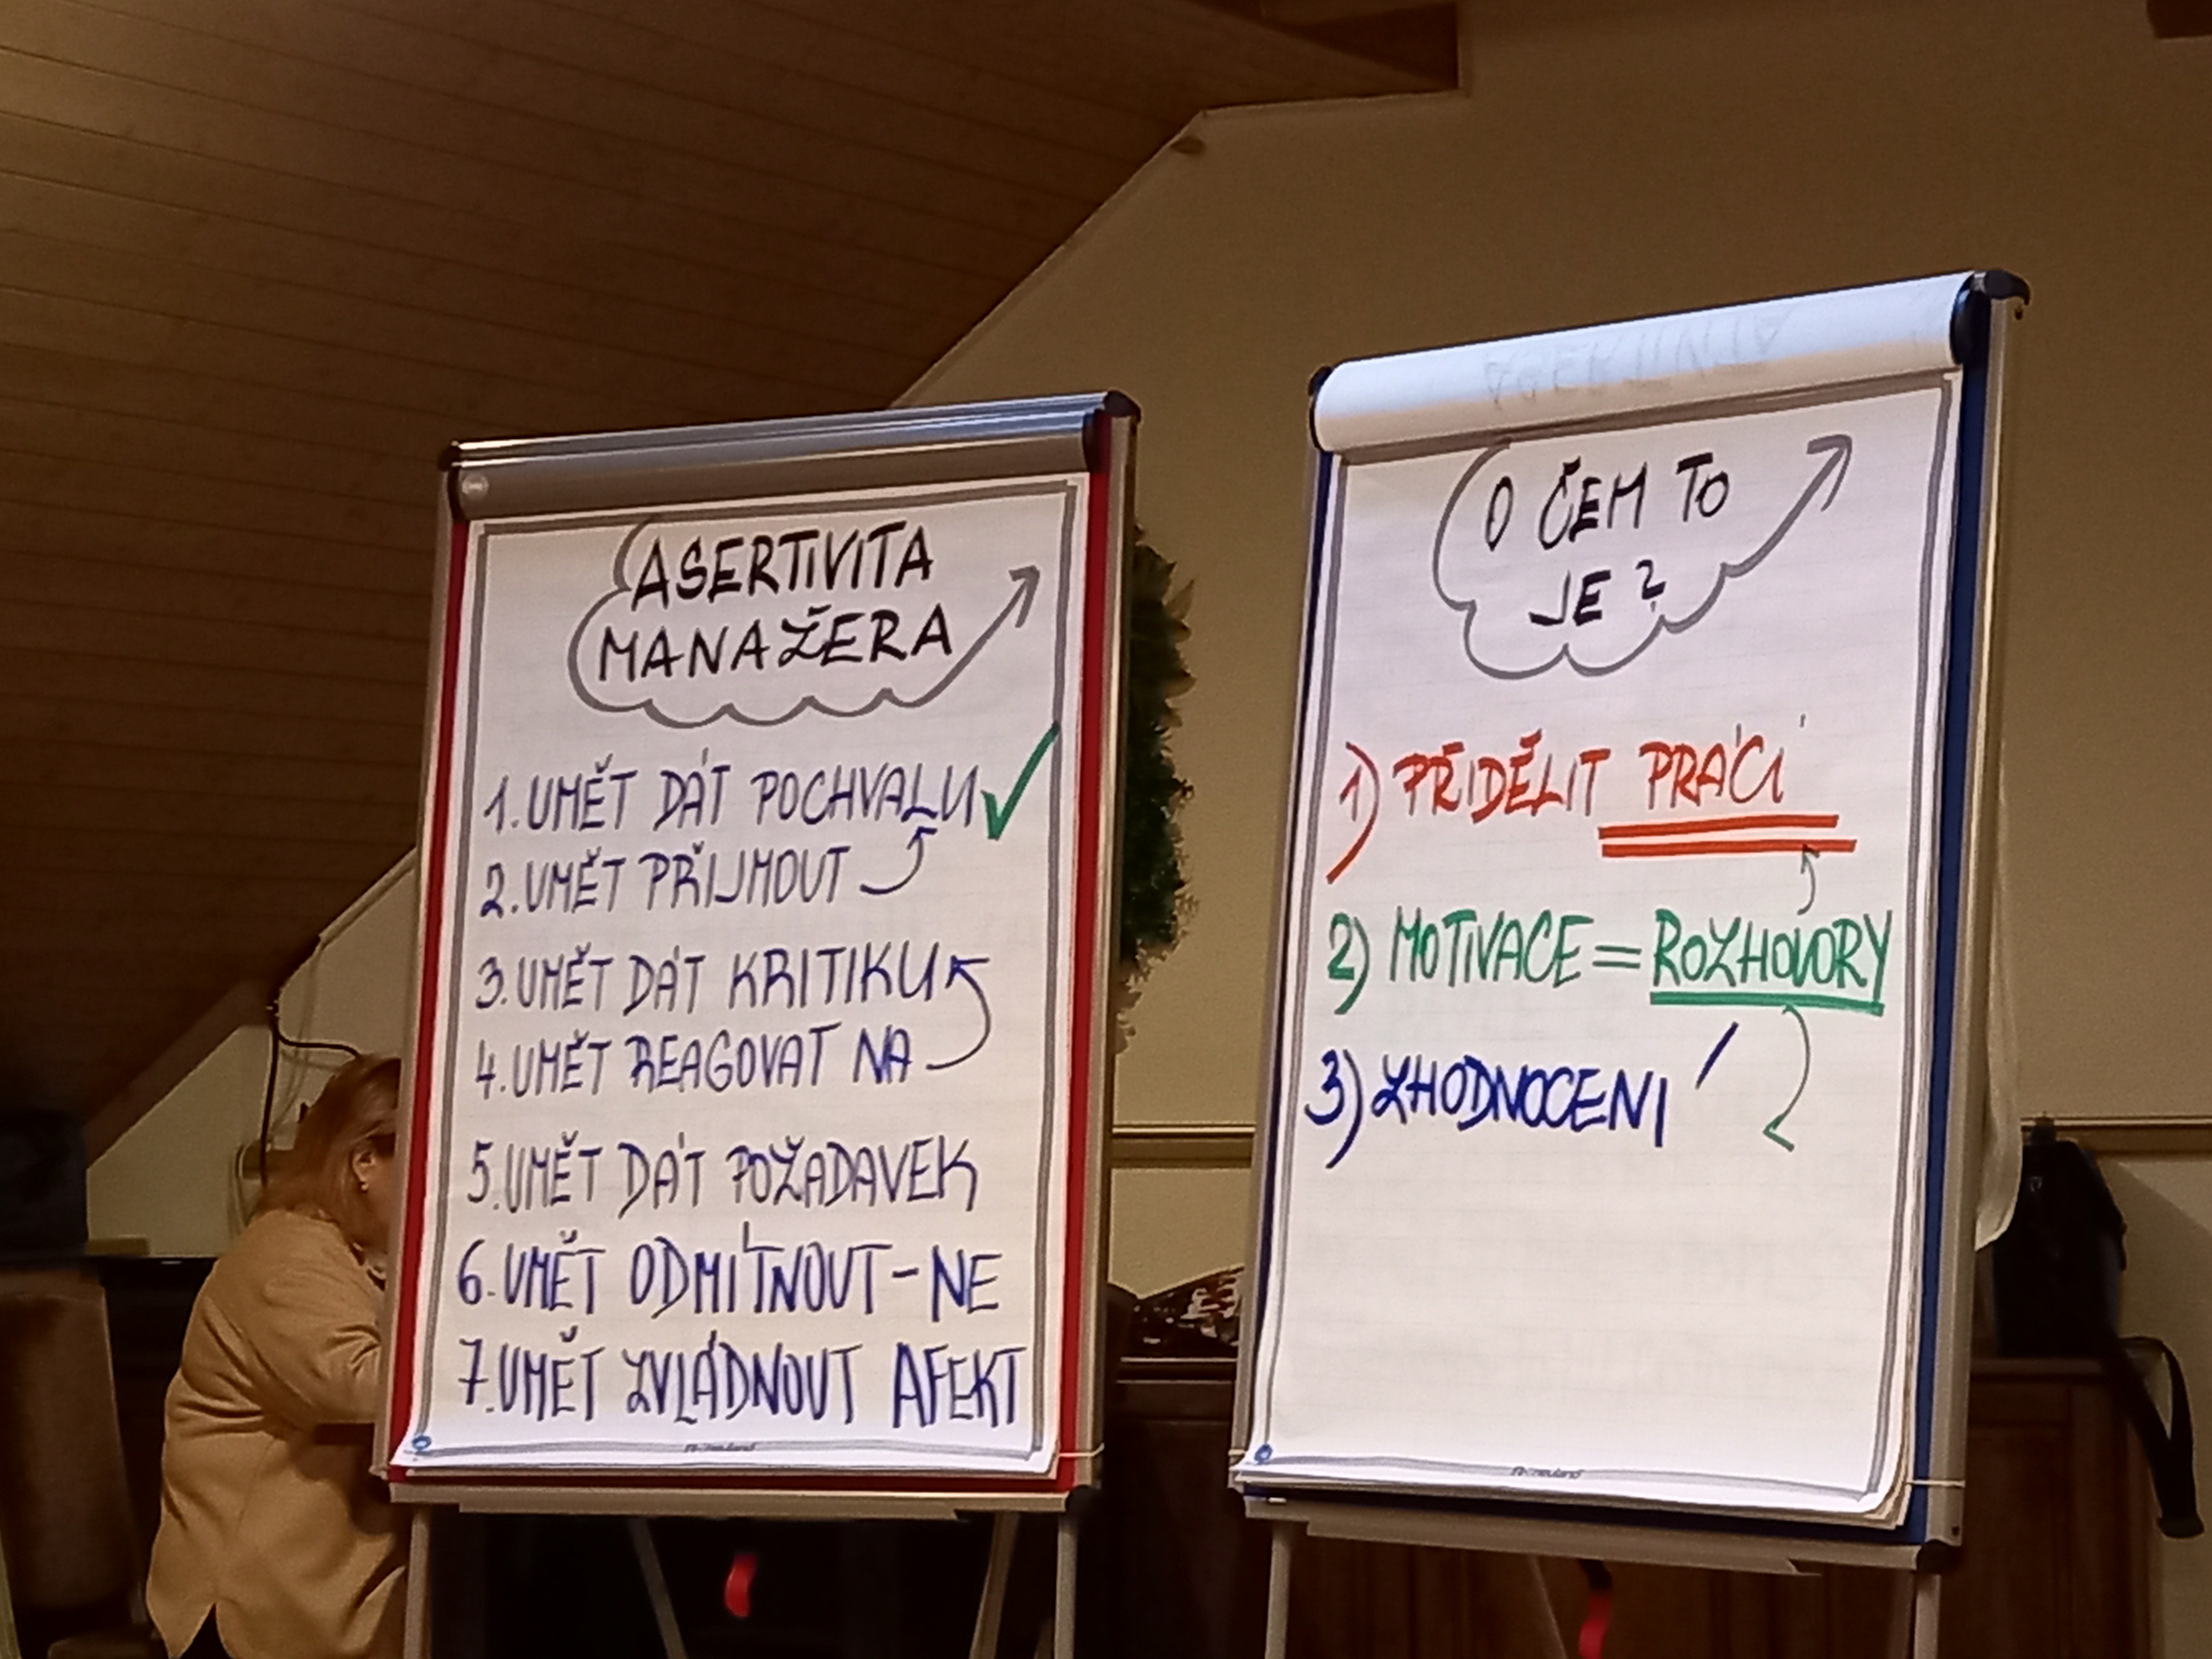 ASERTIVITA
MANAŽERA
1. UMĚT DÁT POCHVALU
2. UMĚT PŘIJMOUT
3. UMĚT DÁT KRITIKU
4. UMĚT REAGOVAT NA
5. UMĚT DÁT POŽADAVEK
6. UMĚT ODMÍTNOUT - NE
7. UMĚT ZVLÁDNOUT AFEKT
O ČEM TO
JE?
1) PŘIDĚLIT PRÁCI
2) MOTIVACE = ROZHOVORY
3) ZHODNOCENÍ